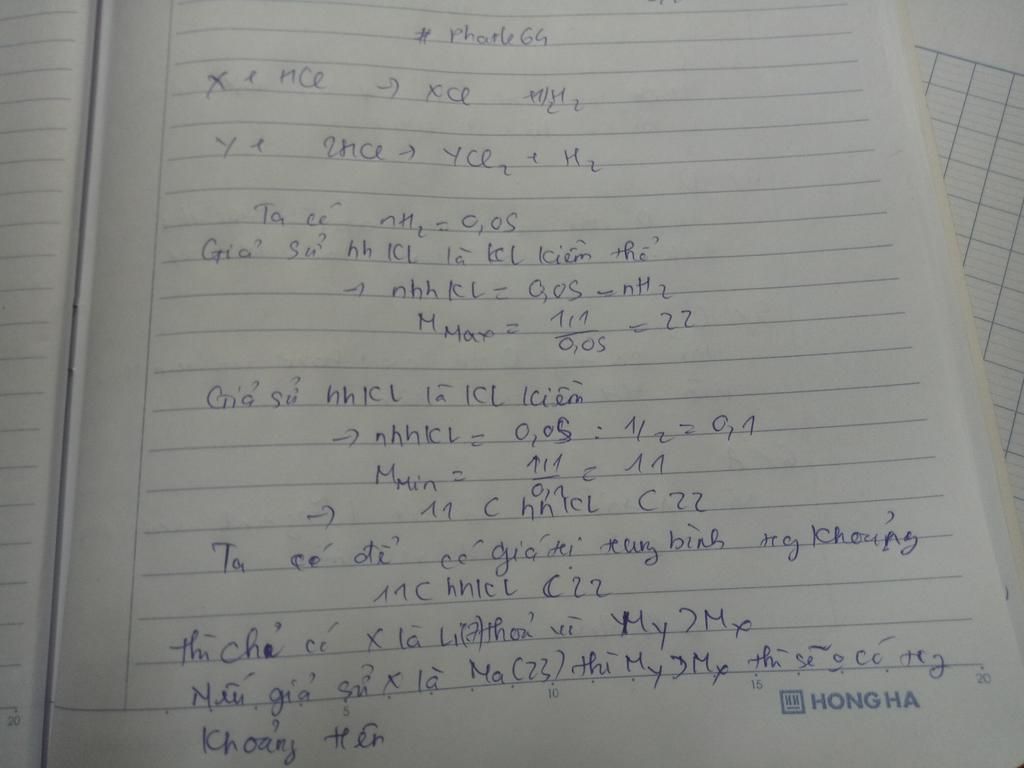 # phatle64
X + HCl → XCl H₂
Y + 2HCl → YCl₂ + H₂
Ta có nH₂ = 0,05
Giả sử hh KL là KL kiềm thổ
→ nhhKL = 0,05 = nH₂
M Max = 1,1 / 0,05 = 22
Giả sử hhKL là KL kiềm
→ nhhKL = 0,05 : 1/2 = 0,1
M Min = 1,1 / 0,1 = 11
→ 11 < hhKL < 22
Ta có để có giá trị trung bình trg khoảng
11 < hhKL < 22
thì chỉ có X là Li(7) thoả vì My > Mx
Nếu giả sử X là Na(23) thì My > Mx thì sẽ có trg
khoảng trên
20
5
10
15
20
HONG HA